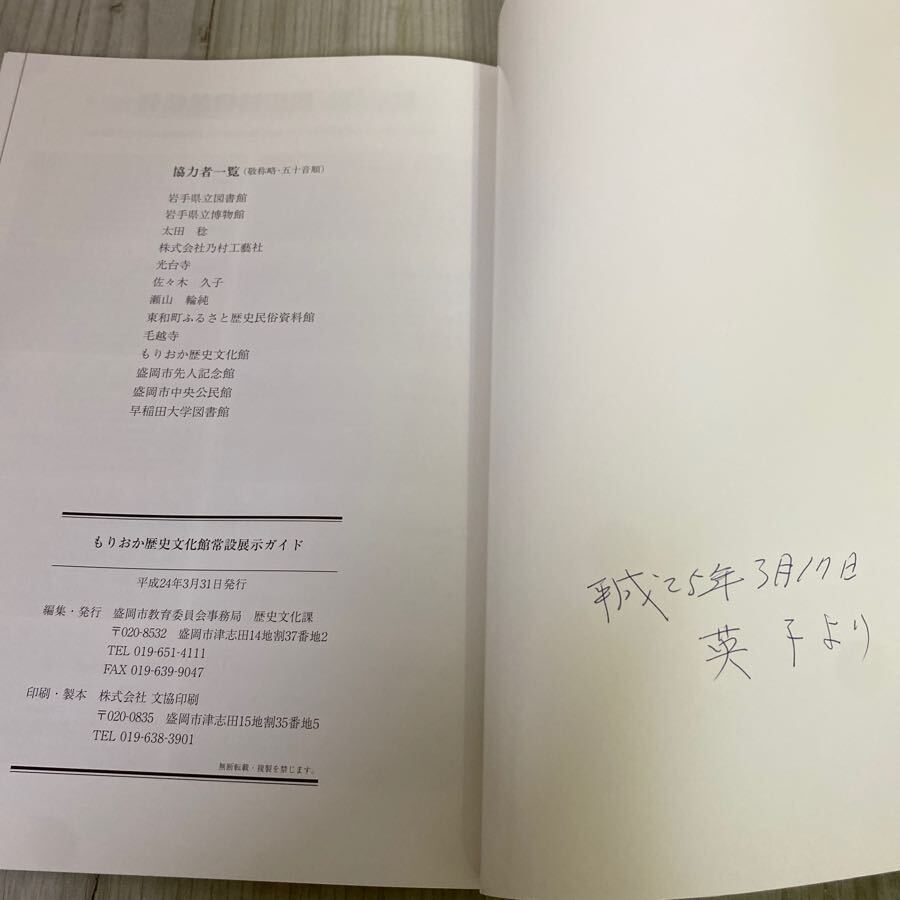 協力者一覧(敬称略・五十音順)
岩手県立図書館
岩手県立博物館
太田 稔
株式会社乃村工藝社
光台寺
佐々木 久子
瀬山 輪純
東和町ふるさと歴史民俗資料館
毛越寺
もりおか歴史文化館
盛岡市先人記念館
盛岡市中央公民館
早稲田大学図書館
もりおか歴史文化館常設展示ガイド
平成24年3月31日発行
編集・発行 盛岡市教育委員会事務局 歴史文化課
〒020-8532 盛岡市津志田14地割37番地2
TEL 019-651-4111
FAX 019-639-9047
印刷・製本 株式会社 文協印刷
〒020-0835 盛岡市津志田15地割35番地5
TEL 019-638-3901
無断転載・複製を禁じます。
平成25年3月17日
英子より